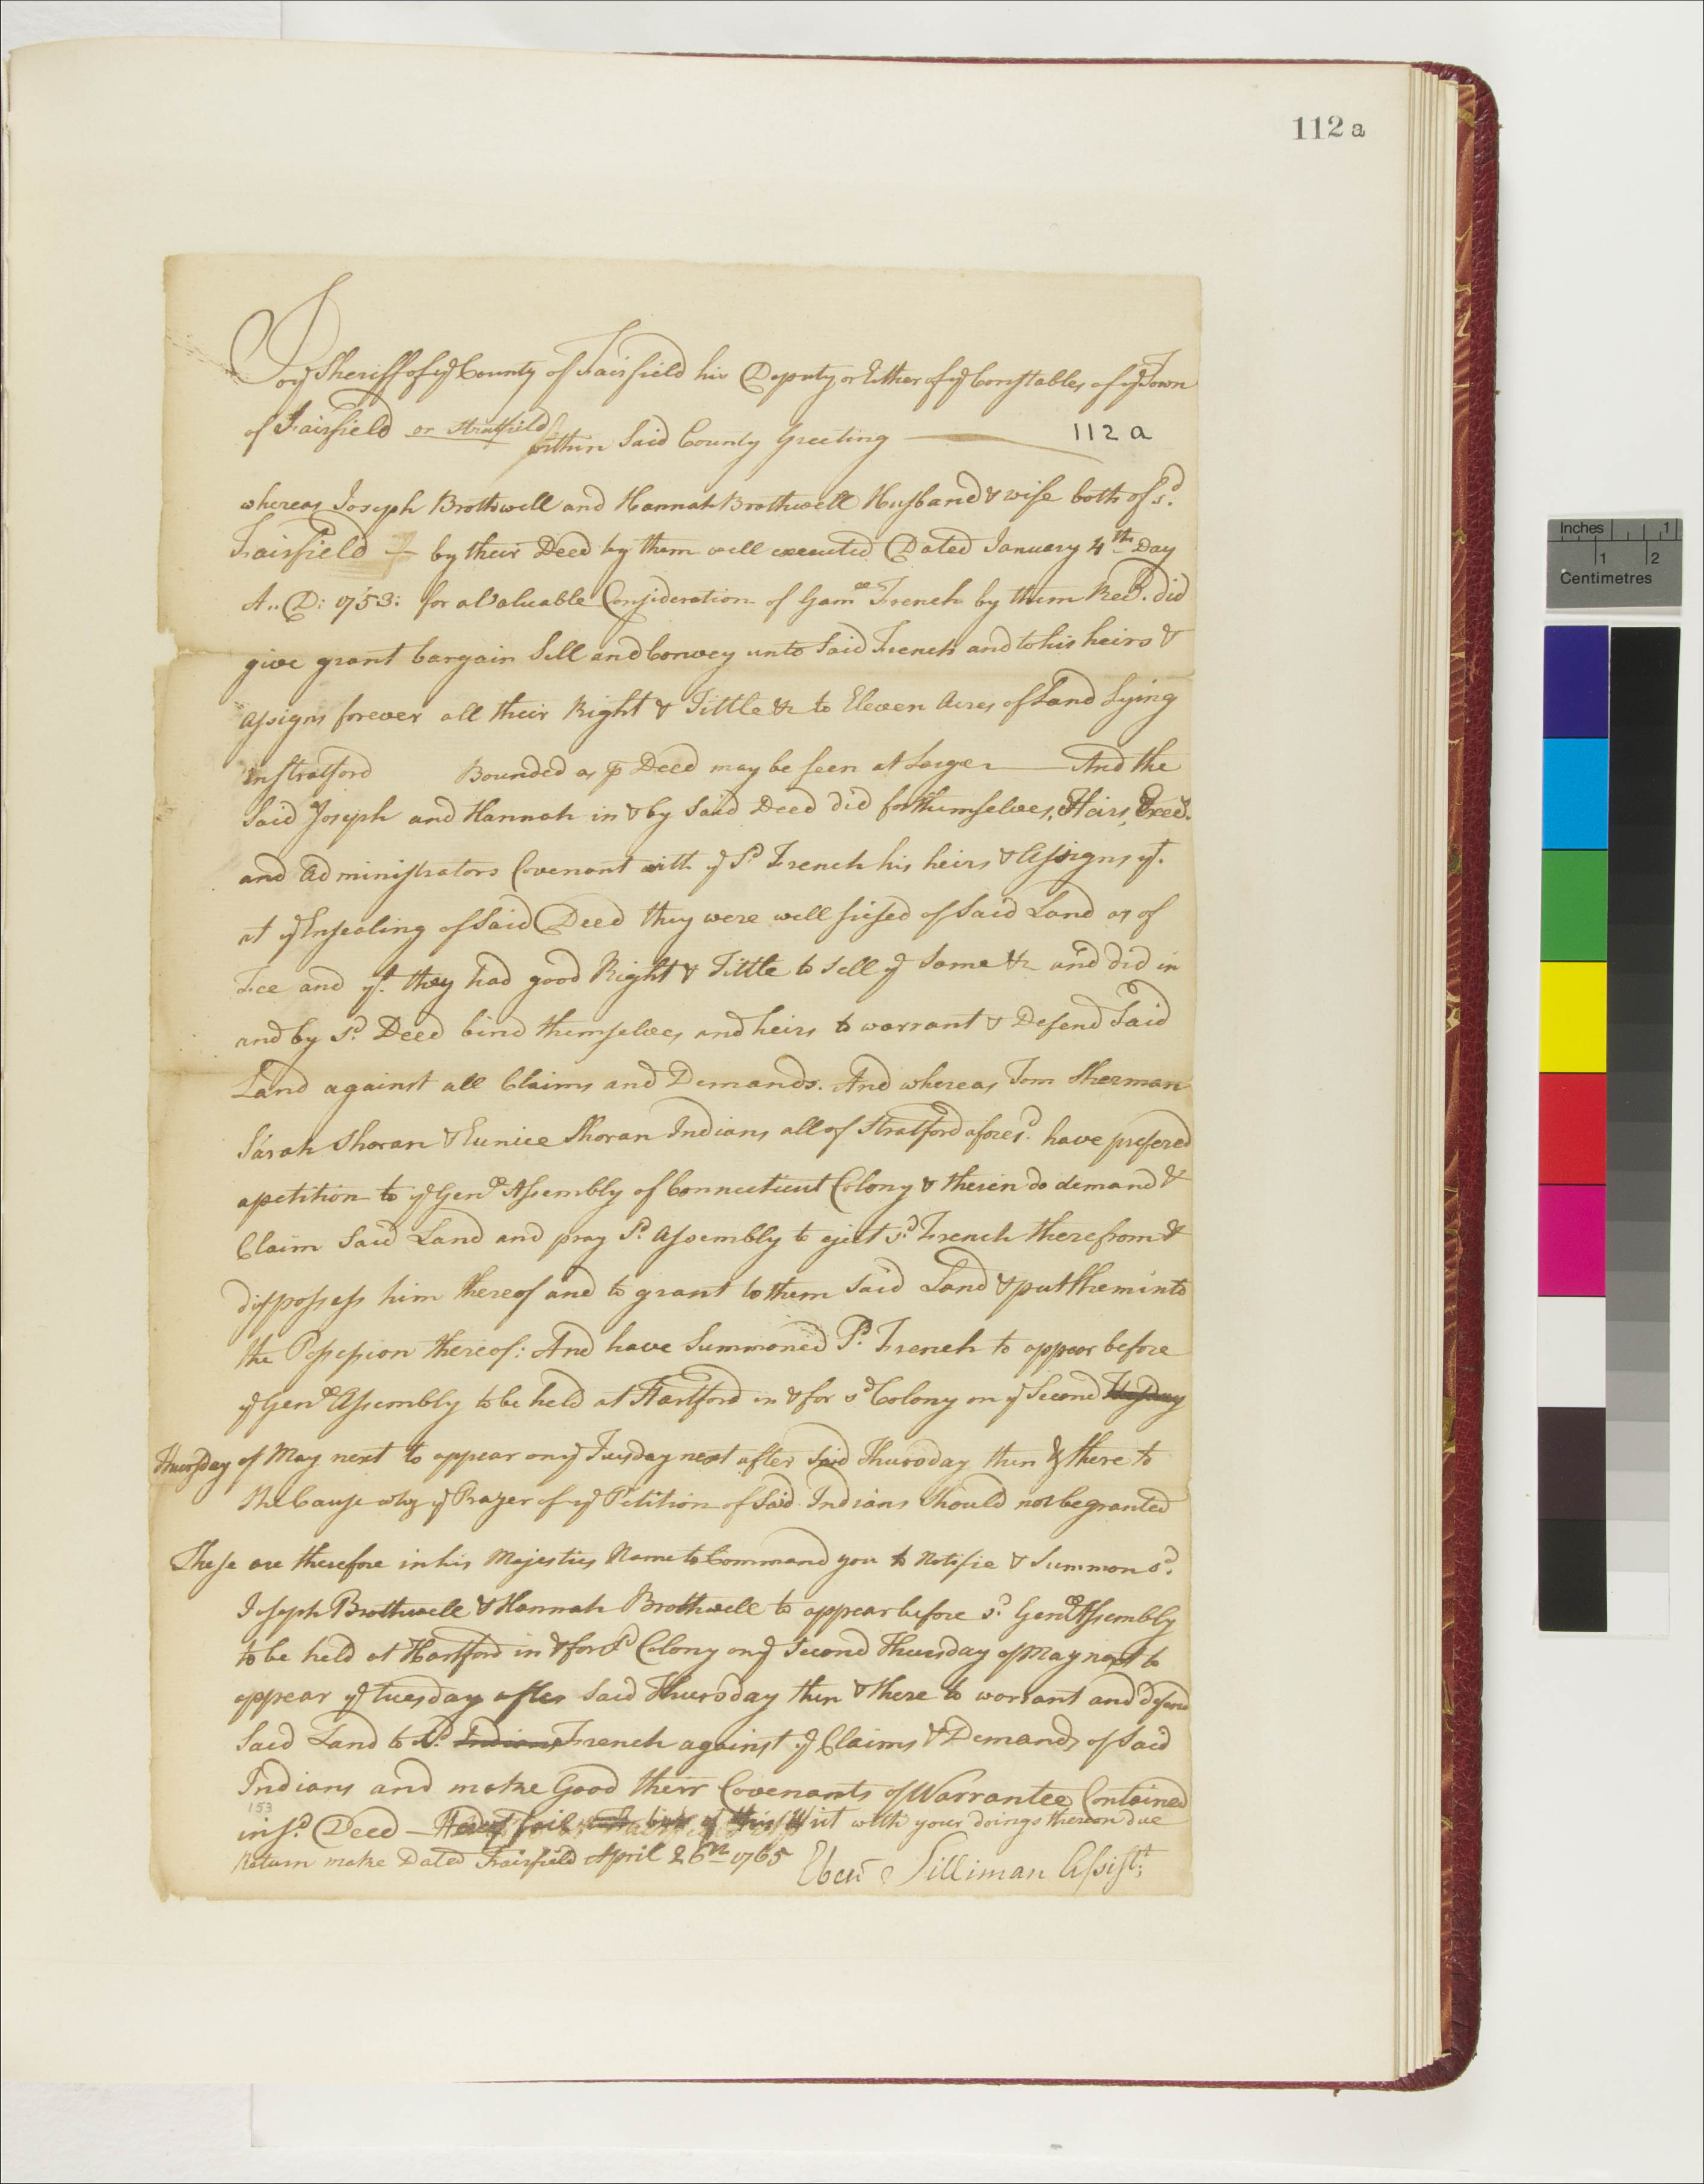 112 a
To ye Sheriff of ye County of Fairfield his Deputy or Either of ye Constables of ye Town
of Fairfield or Stratfield within Said County Greeting
112 a
whereas Joseph Brothwell and Hannah Brothwell Husband & wife both of sd.
Fairfield by their Deed by them well executed Dated January 4th Day
A.. D: 1753: for a Valuable Consideration of Gamll French by them Recd. did
give grant bargain Sell and Convey unto Said French and to his heirs &
assigns forever all their Right & Tittle &c to Eleven Acres of Land Lying
in Stratford Bounded as pr Deed may be seen at Large And the
Said Joseph and Hannah in & by Said Deed did for themselves, Heirs, Execrs.
and Administrators Covenant with ye Sd French his heirs & Assigns yt.
at ye Ensealing of Said Deed they were well siesed of Said Land as of
Fee and yt. they had good Right & Tittle to sell ye Same &c and did in
and by sd. Deed bind themselves and heirs to warrant & Defend Said
Land against all Claims and Demands. And whereas Tom Sherman
Sarah Shoran & Eunice Shoran Indians all of Stratford aforesd. have prefered
a petition to ye Genll Assembly of Connecticut Colony & therein do demand &
Claim Said Land and pray Sd. Assembly to eject sd. French therefrom &
disposess him thereof and to grant to them Said Land & put them into
the Posesion thereof: And have Summoned Sd. French to appear before
ye Genll Assembly to be held at Hartford in & for sd Colony on ye Second Tuesday
Thursday of May next to appear on ye Tuesday next after Said Thursday then & there to
Shew Cause why ye Prayer of ye Petition of Said Indians Should not be granted
These are therefore in his Majesties Name to Command you to Notifie & Summon sd.
Joseph Brothwell & Hannah Brothwell to appear before sd. Genll Assembly
to be held at Hartford in & for Sd Colony on ye Second Thursday of May next to
appear ye tuesday after Said Thursday then & there to warrant and defend
Said Land to Sd. Indians French against ye Claims & Demands of Said
Indians and make Good their Covenants of Warrantee Contained
153
in sd. Deed Hereof fail not of this Writ with your doings thereon due
Return make Dated Fairfield April 26th 1765 Ebenr Silliman Assist: